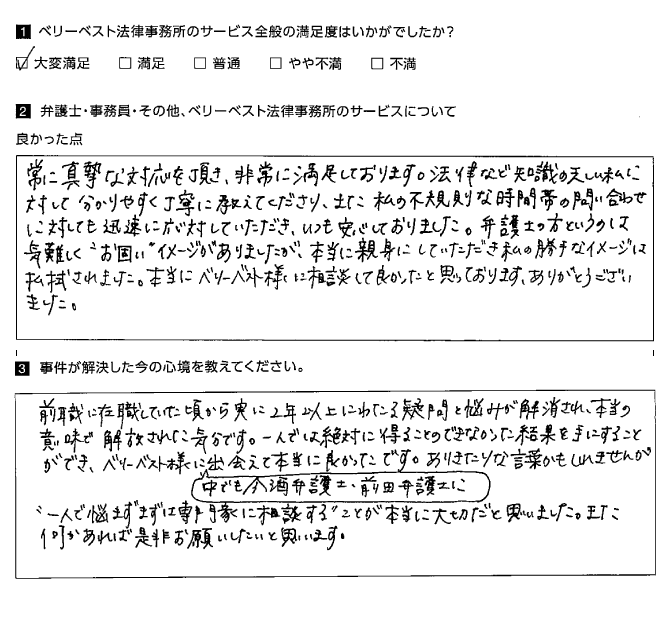 1 ベリーベスト法律事務所のサービス全般の満足度はいかがでしたか?
☑ 大変満足 □ 満足 □ 普通 □ やや不満 □ 不満
2 弁護士・事務員・その他、ベリーベスト法律事務所のサービスについて
良かった点
常に真摯な対応を頂き、非常に満足しております。法律など知識の乏しい私に
対して分かりやすく丁寧に教えてくださり、また私の不規則な時間帯の問い合わせ
に対しても迅速に応対していただき、いつも安心しておりました。弁護士の方というのは
気難しく"お固い"イメージがありましたが、本当に親身にしていただき私の勝手なイメージは
払拭されました。本当にベリーベスト様に相談して良かったと思っております、ありがとうござい
ました。
3 事件が解決した今の心境を教えてください。
前職に在職していた頃から実に2年以上にわたる疑問と悩みが解消され、本当の
意味で解放された気分です。一人では絶対に得ることのできなかった結果を手にすること
ができ、ベリーベスト様に出会えて本当に良かったです。ありきたりな言葉かもしれませんが
中でも今酒弁護士・前田弁護士に
"一人で悩まずまずは専門家に相談する"ことが本当に大切だと思いました。また
何かあれば是非お願いしたいと思います。